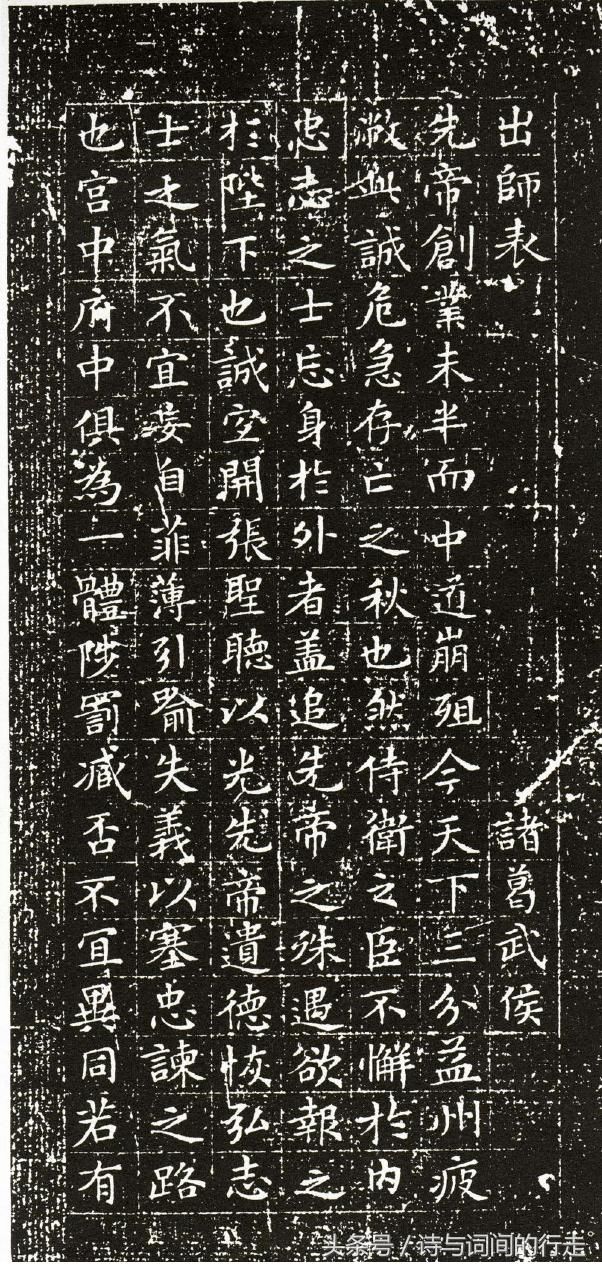 出師表 諸葛武侯
先帝創業未半而中道崩殂今天下三分益州疲
敝此誠危急存亡之秋也然侍衛之臣不懈於内
忠志之士忘身於外者盖追先帝之殊遇欲報之
於陛下也誠宜開張聖聽以光先帝遺德恢弘志
士之氣不宜妄自菲薄引喻失義以塞忠諫之路
也宫中府中俱為一體陟罰臧否不宜異同若有
头条号 / 诗与词间的行走